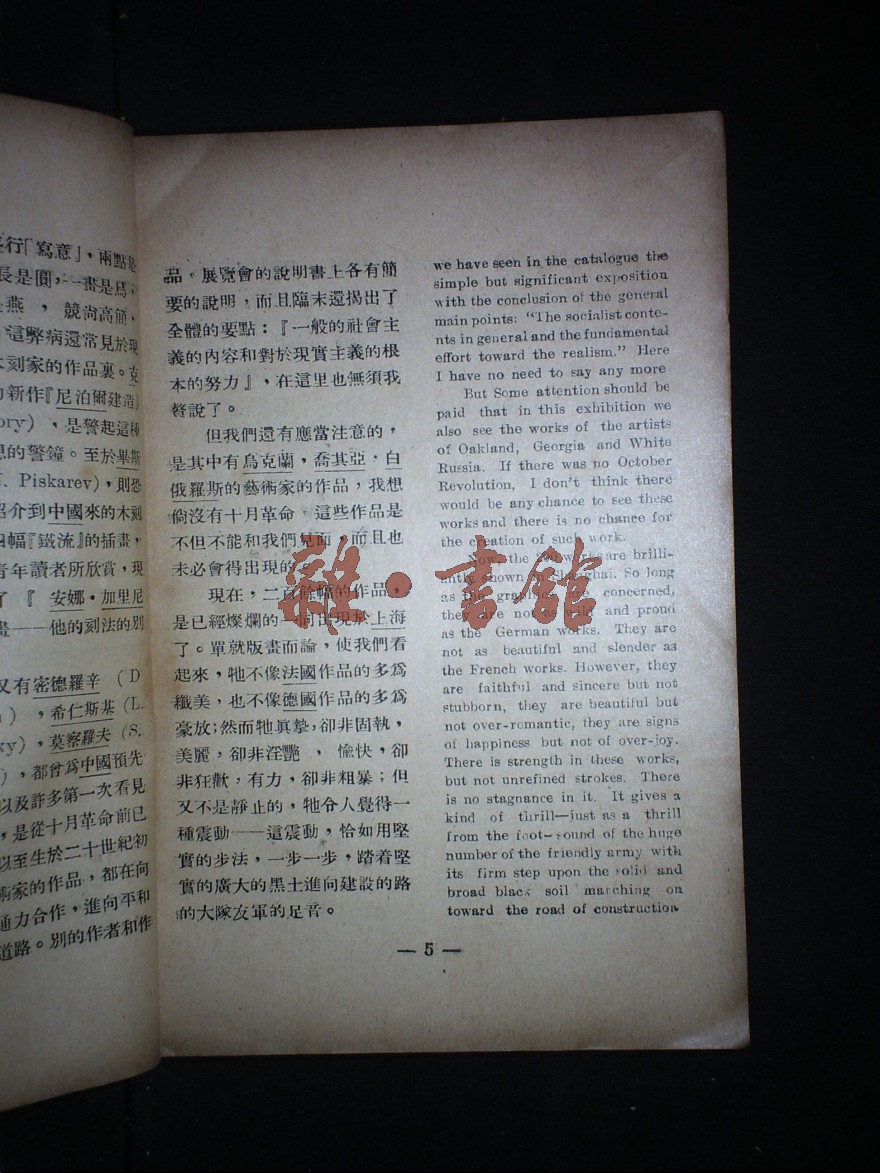 行「寫意」，兩點是
長是圓，一畫是鳥，
是燕，競尚高簡，
這弊病還常見於現
木刻家的作品裏。克
新作『尼泊爾建造』
ory)，是警起這種
想的警鐘。至於畢斯
. Piskarev)，則恐
紹介到中國來的木刻
四幅『鐵流』的插畫，
青年讀者所欣賞，現
了『安娜・加里尼
畫——他的刻法的別
又有密德羅辛 (D
)，希仁斯基 (L.
ky)，莫察羅夫 (S.
)，都曾爲中國預先
以及許多第一次看見
，是從十月革命前已
以至生於二十世紀初
術家的作品，都在向
通力合作，進向平和
道路。別的作者和作
品。展覽會的說明書上各有簡
要的說明，而且臨末還揭出了
全體的要點：『一般的社會主
義的內容和對於現實主義的根
本的努力』，在這里也無須我
贅說了。
但我們還有應當注意的，
是其中有烏克蘭，喬其亞，白
俄羅斯的藝術家的作品，我想
倘沒有十月革命，這些作品是
不但不能和我們見面，而且也
未必會得出現的。
現在，二百餘幅的作品，
是已經燦爛的一同出現於上海
了。單就版畫而論，使我們看
起來，牠不像法國作品的多爲
纖美，也不像德國作品的多爲
豪放；然而牠真摯，卻非固執，
美麗，卻非淫艷，愉快，卻
非狂歡，有力，卻非粗暴；但
又不是靜止的，牠令人覺得一
種震動——這震動，恰如用堅
實的步法，一步一步，踏着堅
實的廣大的黑土進向建設的路
的大隊友軍的足音。
we have seen in the catalogue the
simple but significant exposition
with the conclusion of the general
main points: "The socialist conte-
nts in general and the fundamental
effort toward the realism." Here
I have no need to say any more
But Some attention should be
paid that in this exhibition we
also see the works of the artists
of Oakland, Georgia and White
Russia. If there was no October
Revolution, I don't think there
would be any chance to see these
works and there is no chance for
the creation of such work.
Now, the 200 works are brilli-
antly shown in Shanghai. So long
as the graphic are concerned,
they are not as and proud
as the German works. They are
not as beautiful and slender as
the French works. However, they
are faithful and sincere but not
stubborn, they are beautiful but
not over-romantic, they are signs
of happiness but not of over-joy.
There is strength in these works,
but not unrefined strokes. There
is no stagnance in it. It gives a
kind of thrill—just as a thrill
from the foot-sound of the huge
number of the friendly army with
its firm step upon the solid and
broad black soil marching on
toward the road of construction
— 5 —
雜・書館